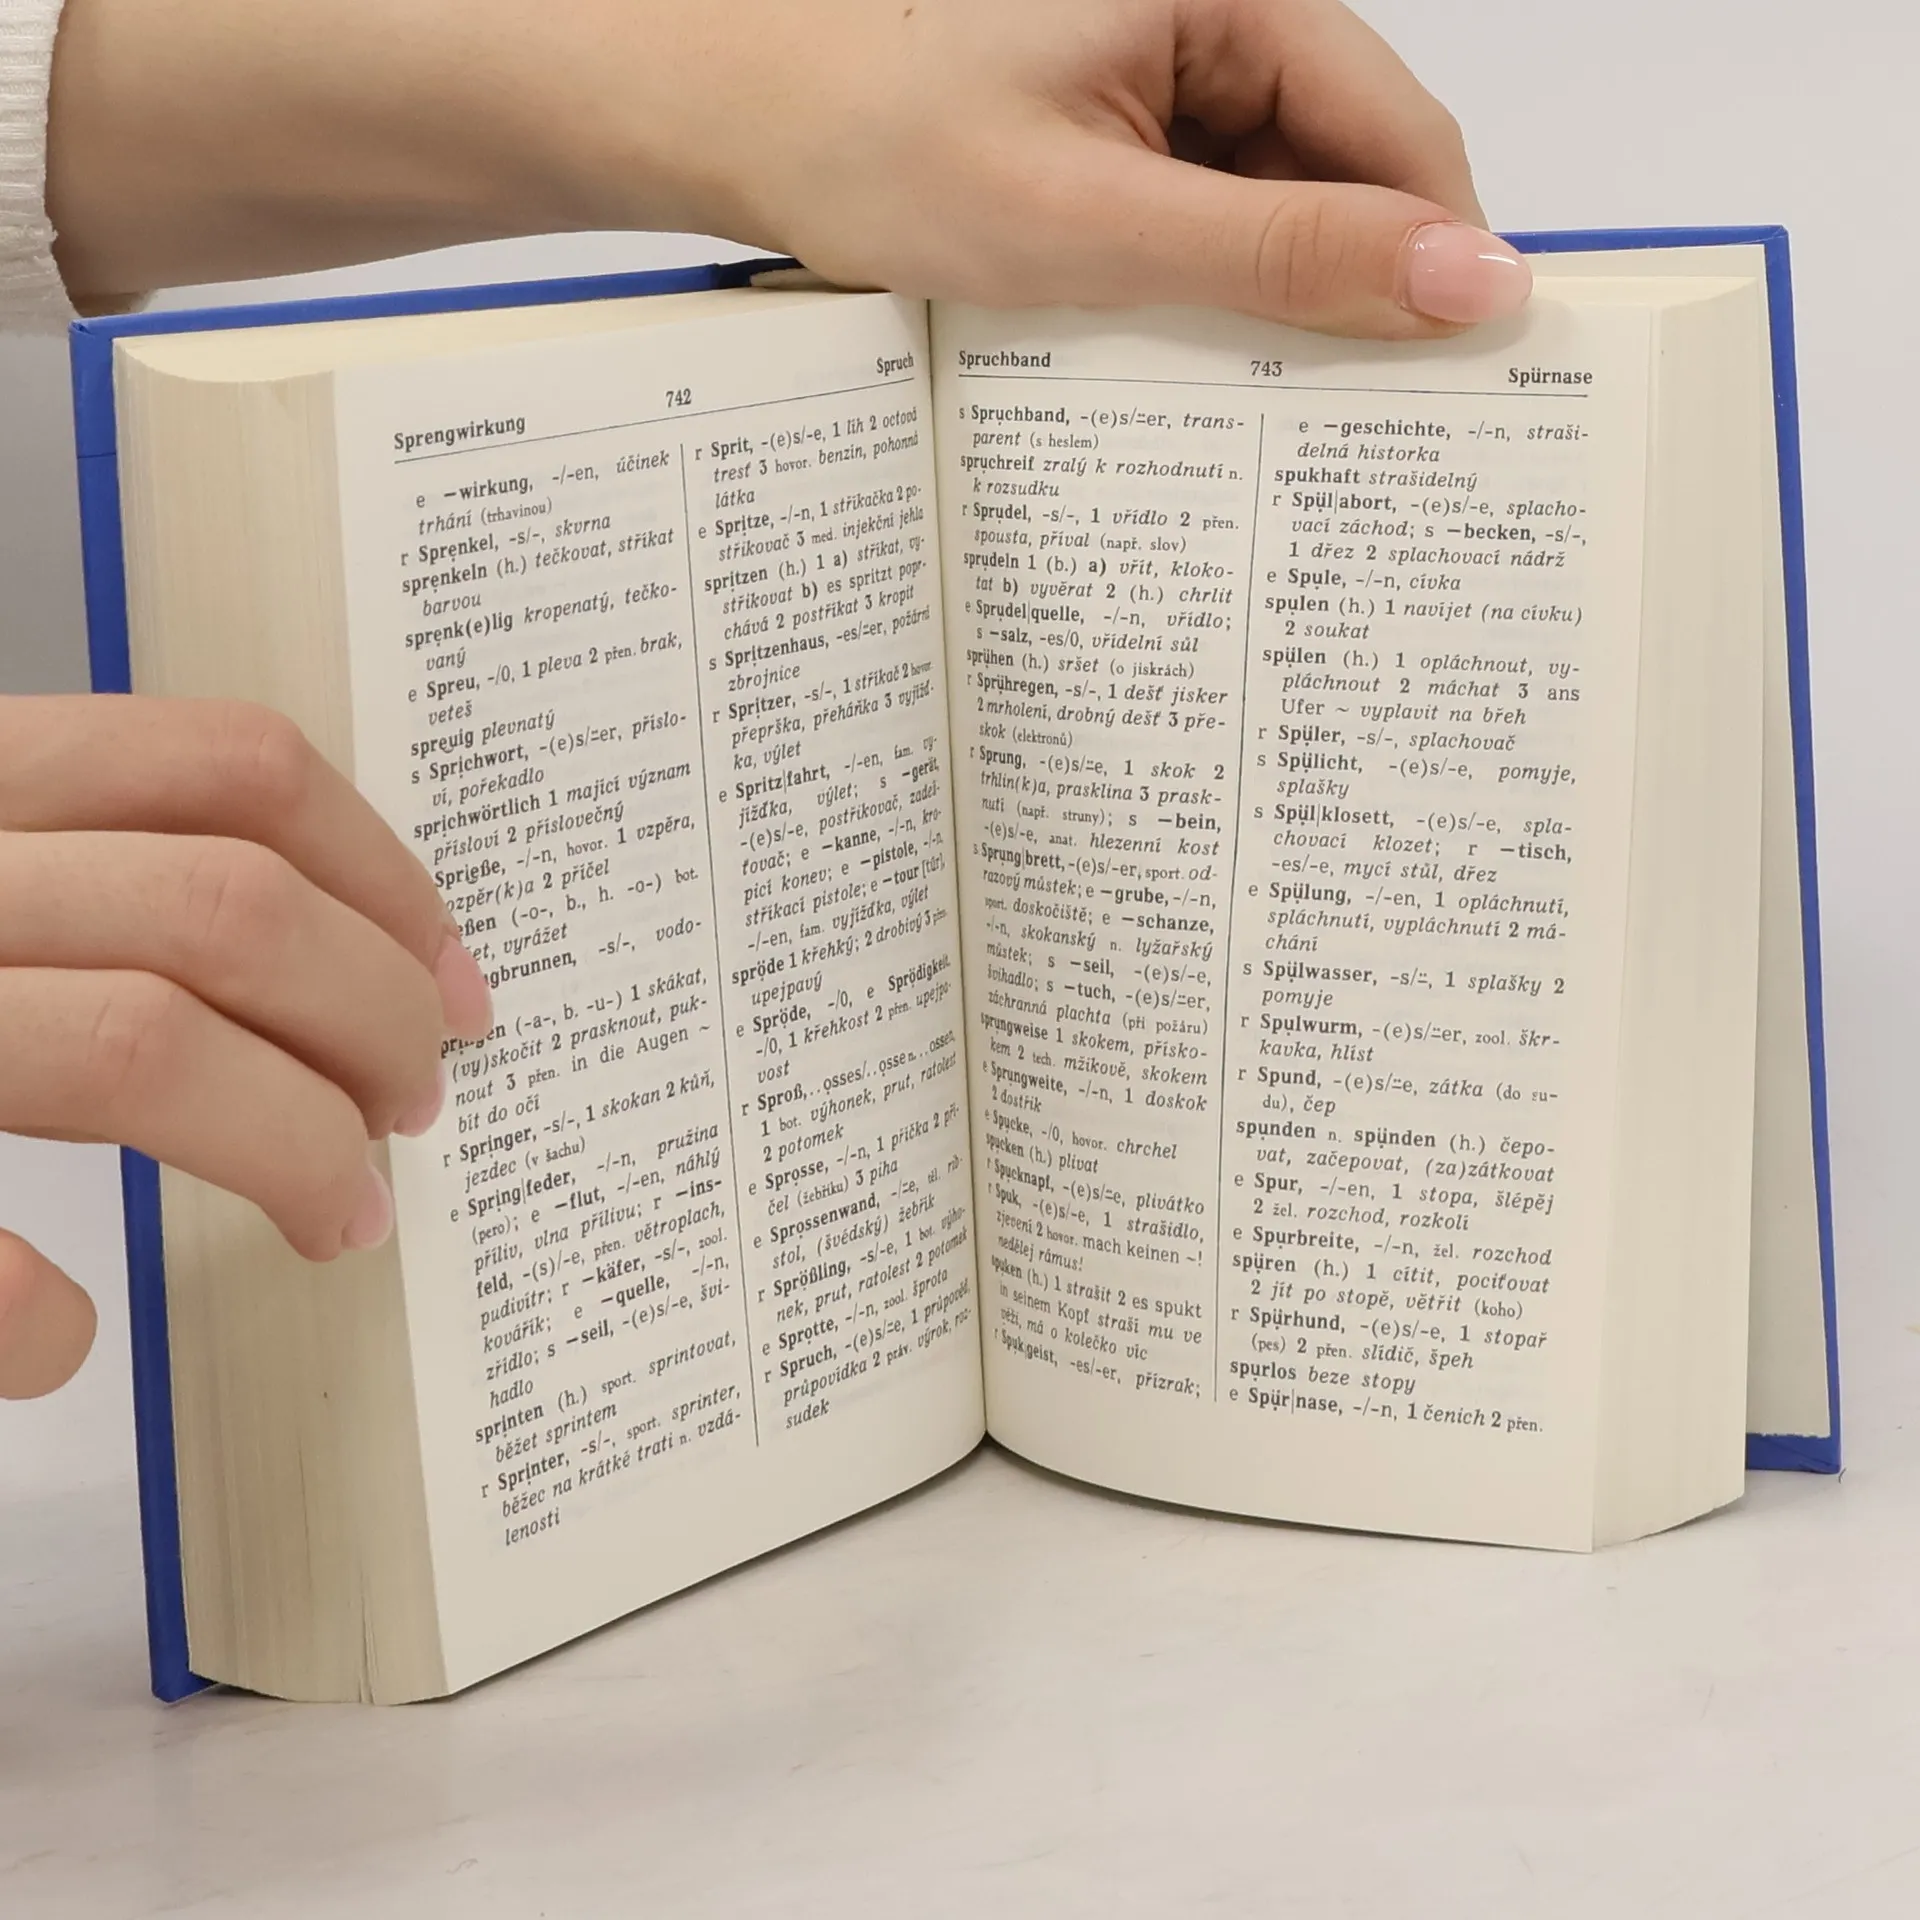 Sprengwirkung 742 Spruch
e —wirkung, -/-en, účinek
trhání (trhavinou)
r Sprenkel, -s/-, skvrna
sprenkeln (h.) tečkovat, stříkat
barvou
sprenk(e)lig kropenatý, tečko-
vaný
e Spreu, -/0, 1 pleva 2 přen. brak,
veteš
spreuig plevnatý
s Sprichwort, -(e)s/⸚er, příslo-
ví, pořekadlo
sprichwörtlich 1 mající význam
přísloví 2 příslovečný
Sprieße, -/-n, hovor. 1 vzpěra,
ozpěr(k)a 2 příčel
eßen (-o-, b., h. -o-) bot.
et, vyrážet
gbrunnen, -s/-, vodo-
en (-a-, b. -u-) 1 skákat,
(vy)skočit 2 prasknout, puk-
nout 3 přen. in die Augen ~
bít do očí
r Springer, -s/-, 1 skokan 2 kůň,
jezdec (v šachu)
e Spring|feder, -/-n, pružina
(pero); e —flut, -/-en, náhlý
příliv, vlna přílivu; r —ins-
feld, -(s)/-e, přen. větroplach,
pudivítr; r —käfer, -s/-, zool.
kovářík; e —quelle, -/-n,
zřídlo; s —seil, -(e)s/-e, švi-
hadlo
sprinten (h.) sport. sprintovat,
běžet sprintem
r Sprinter, -s/-, sport. sprinter,
běžec na krátké trati n. vzdá-
lenosti
r Sprit, -(e)s/-e, 1 líh 2 octová
tresť 3 hovor. benzín, pohonná
látka
e Spritze, -/-n, 1 stříkačka 2 po-
střikovač 3 med. injekční jehla
spritzen (h.) 1 a) stříkat, vy-
střikovat b) es spritzt popr-
chává 2 postříkat 3 kropit
s Spritzenhaus, -es/⸚er, požární
zbrojnice
r Spritzer, -s/-, 1 stříkač 2 hovor.
přeprška, přeháňka 3 vyjížď-
ka, výlet
e Spritz|fahrt, -/-en, fam. vy-
jížďka, výlet; s —gerät,
-(e)s/-e, postřikovač, zadeš-
ťovač; e —kanne, -/-n, kro-
picí konev; e —pistole, -/-n,
stříkací pistole; e —tour [túr],
-/-en, fam. vyjížďka, výlet
spröde 1 křehký; 2 drobivý 3 přen.
upejpavý
e Spröde, -/0, e Sprödigkeit,
-/0, 1 křehkost 2 přen. upejpa-
vost
r Sproß,..osses/..osse n...ossen,
1 bot. výhonek, prut, ratolest
2 potomek
e Sprosse, -/-n, 1 příčka 2 pří-
čel (žebříku) 3 piha
e Sprossenwand, -/⸚e, těl. rib-
stol, (švédský) žebřík
r Sprößling, -s/-e, 1 bot. výho-
nek, prut, ratolest 2 potomek
e Sprotte, -/-n, zool. šprota
r Spruch, -(e)s/⸚e, 1 průpověď,
průpovídka 2 práv. výrok, roz-
sudek
Spruchband 743 Spürnase
s Spruchband, -(e)s/⸚er, trans-
parent (s heslem)
spruchreif zralý k rozhodnutí n.
k rozsudku
r Sprudel, -s/-, 1 vřídlo 2 přen.
spousta, příval (např. slov)
sprudeln 1 (b.) a) vřít, kloko-
tat b) vyvěrat 2 (h.) chrlit
e Sprudel|quelle, -/-n, vřídlo;
s —salz, -es/0, vřídelní sůl
sprühen (h.) sršet (o jiskrách)
r Sprühregen, -s/-, 1 déšť jisker
2 mrholení, drobný déšť 3 pře-
skok (elektronů)
r Sprung, -(e)s/⸚e, 1 skok 2
trhlin(k)a, prasklina 3 prask-
nutí (např. struny); s —bein,
-(e)s/-e, anat. hlezenní kost
s Sprung|brett, -(e)s/-er, sport. od-
razový můstek; e —grube, -/-n,
sport. doskočiště; e —schanze,
-/-n, skokanský n. lyžařský
můstek; s —seil, -(e)s/-e,
švihadlo; s —tuch, -(e)s/⸚er,
záchranná plachta (při požáru)
sprungweise 1 skokem, přísko-
kem 2 tech. mžikově, skokem
e Sprungweite, -/-n, 1 doskok
2 dostřik
e Spucke, -/0, hovor. chrchel
spucken (h.) plivat
r Spucknapf, -(e)s/⸚e, plivátko
r Spuk, -(e)s/-e, 1 strašidlo,
zjevení 2 hovor. mach keinen ~!
nedělej rámus!
spuken (h.) 1 strašit 2 es spukt
in seinem Kopf straší mu ve
věži, má o kolečko víc
r Spuk|geist, -es/-er, přízrak;
e —geschichte, -/-n, straši-
delná historka
spukhaft strašidelný
r Spül|abort, -(e)s/-e, splacho-
vací záchod; s —becken, -s/-,
1 dřez 2 splachovací nádrž
e Spule, -/-n, cívka
spulen (h.) 1 navíjet (na cívku)
2 soukat
spülen (h.) 1 opláchnout, vy-
pláchnout 2 máchat 3 ans
Ufer ~ vyplavit na břeh
r Spüler, -s/-, splachovač
s Spülicht, -(e)s/-e, pomyje,
splašky
s Spül|klosett, -(e)s/-e, spla-
chovací klozet; r —tisch,
-es/-e, mycí stůl, dřez
e Spülung, -/-en, 1 opláchnutí,
spláchnutí, vypláchnutí 2 má-
chání
s Spülwasser, -s/⸚, 1 splašky 2
pomyje
r Spulwurm, -(e)s/⸚er, zool. škr-
kavka, hlíst
r Spund, -(e)s/⸚e, zátka (do su-
du), čep
spunden n. spünden (h.) čepo-
vat, začepovat, (za)zátkovat
e Spur, -/-en, 1 stopa, šlépěj
2 žel. rozchod, rozkolí
e Spurbreite, -/-n, žel. rozchod
spüren (h.) 1 cítit, pociťovat
2 jít po stopě, větřit (koho)
r Spürhund, -(e)s/-e, 1 stopař
(pes) 2 přen. slídič, špeh
spurlos beze stopy
e Spür|nase, -/-n, 1 čenich 2 přen.